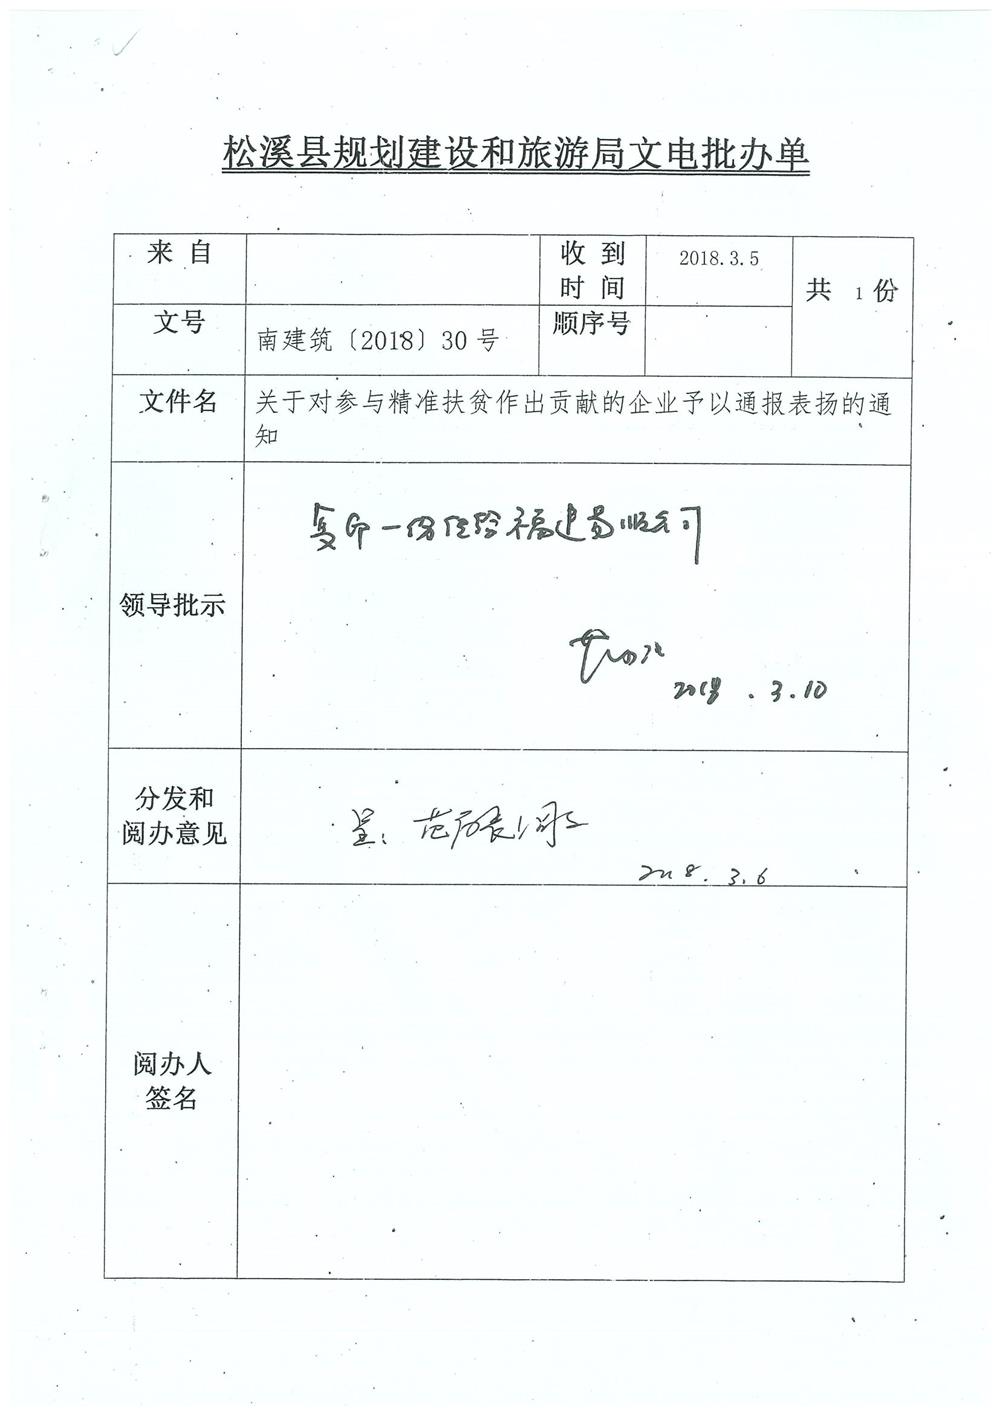 松溪县规划建设和旅游局文电批办单
来 自
收 到
时 间
2018.3.5
共 1 份
文号
南建筑〔2018〕30 号
顺序号
文件名
关于对参与精准扶贫作出贡献的企业予以通报表扬的通
知
领导批示
复印一份 福建 公司
2018.3.10
分发和
阅办意见
呈：范局长阅
2018.3.6
阅办人
签名